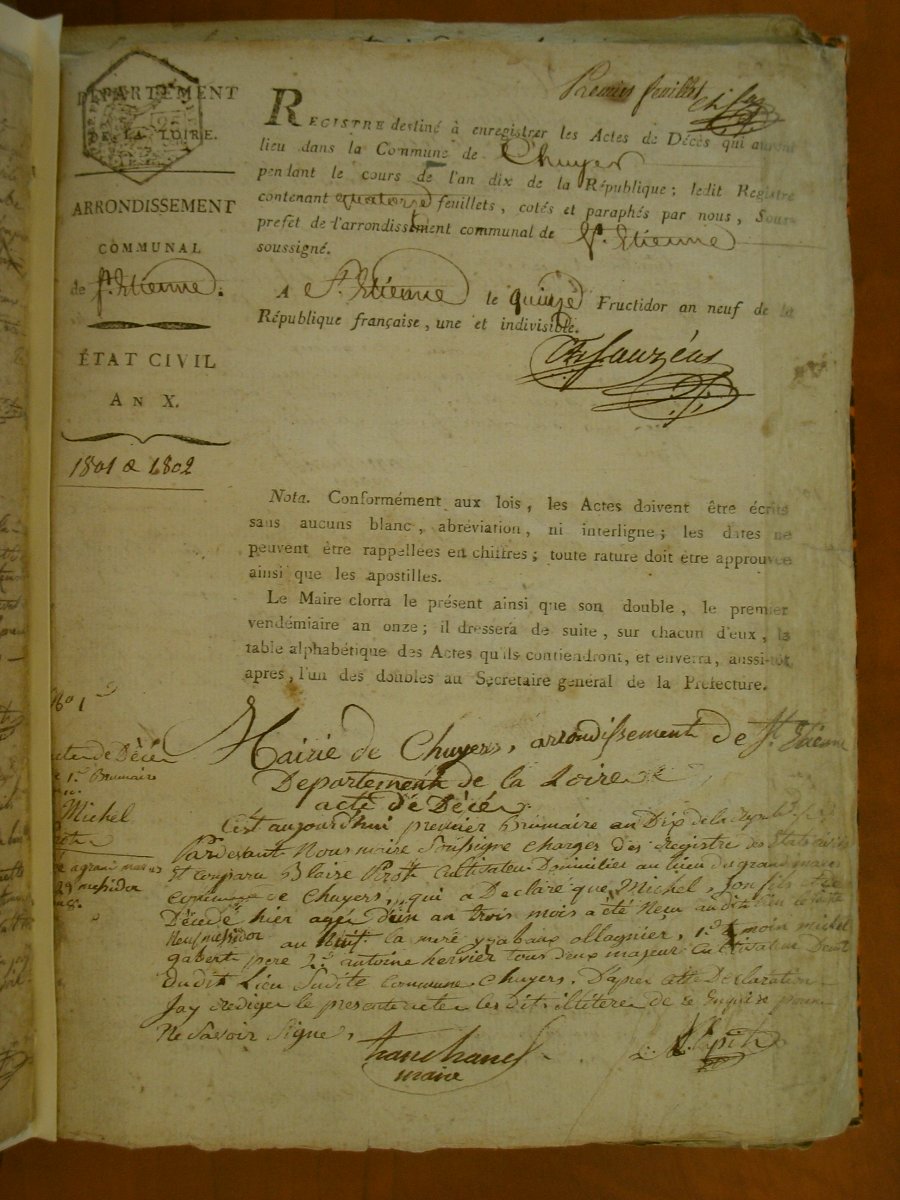 Premier feuillet
DÉPARTEMENT
DE LA LOIRE.
ARRONDISSEMENT
COMMUNAL
de St. Etienne.
ÉTAT CIVIL
AN X.
1801 & 1802
REGISTRE destiné à enregistrer les Actes de Décès qui auront
lieu dans la Commune de Chuyer
pendant le cours de l'an dix de la République ; ledit Registre
contenant quatorze feuillets, cotés et paraphés par nous, Sous-
prefet de l'arrondissement communal de St. Etienne
soussigné.
A St. Etienne le quinze Fructidor an neuf de la
République française, une et indivisible.
Nota. Conformément aux lois, les Actes doivent être écrits
sans aucuns blanc, abréviation, ni interligne ; les dates ne
peuvent être rappellées en chiffres ; toute rature doit être approuvée
ainsi que les apostilles.
Le Maire clorra le présent ainsi que son double, le premier
vendémiaire an onze ; il dressera de suite, sur chacun d'eux, la
table alphabétique des Actes qu'ils contiendront, et enverra, aussi-tôt
apres, l'un des doubles au Secretaire général de la Prefecture.
No 1
de Décé
1er Brumaire
Michel
messidor
Mairie de Chuyers, arrondissement de St Etienne
Departement de la Loire
acte de Décé
C'est aujourd'hui premier Brumaire an Dix de la
Pardevant Nous maire Soussigne Charger des Registre des
Et comparu Blaise Cultivateur Domicilier au lieu de
commune de Chuyers, qui a Declaré que Michel, son fils
Décedé hier agé d'un an trois mois a été audit lieu le
Neuf messidor au la mere ysabaux ollagnier, moin michel
pere antoine hervier tous deux majeur Cultivateur
dudit Lieu Sudite Commune Chuyers, D'apres Declaration
Jay rediger le present acte les dit de ce Enquire pour
Ne Savoir Signe,
maire